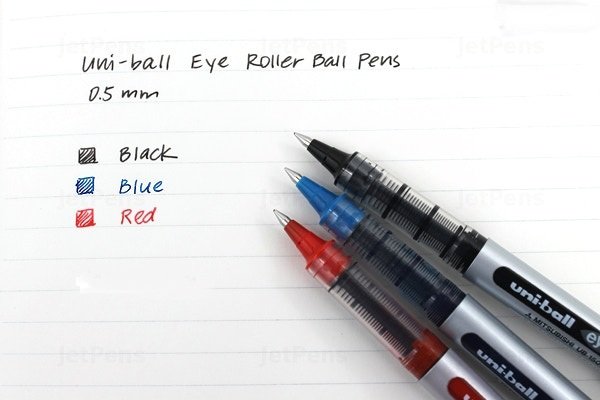 uni-ball Eye Roller Ball Pens
0.5 mm
Black
Blue
Red
uni-ball eye
MITSUBISHI UB-150
uni-ball
JetPens
JetPens
JetPens
JetPens
JetPens
JetPens
JetPens